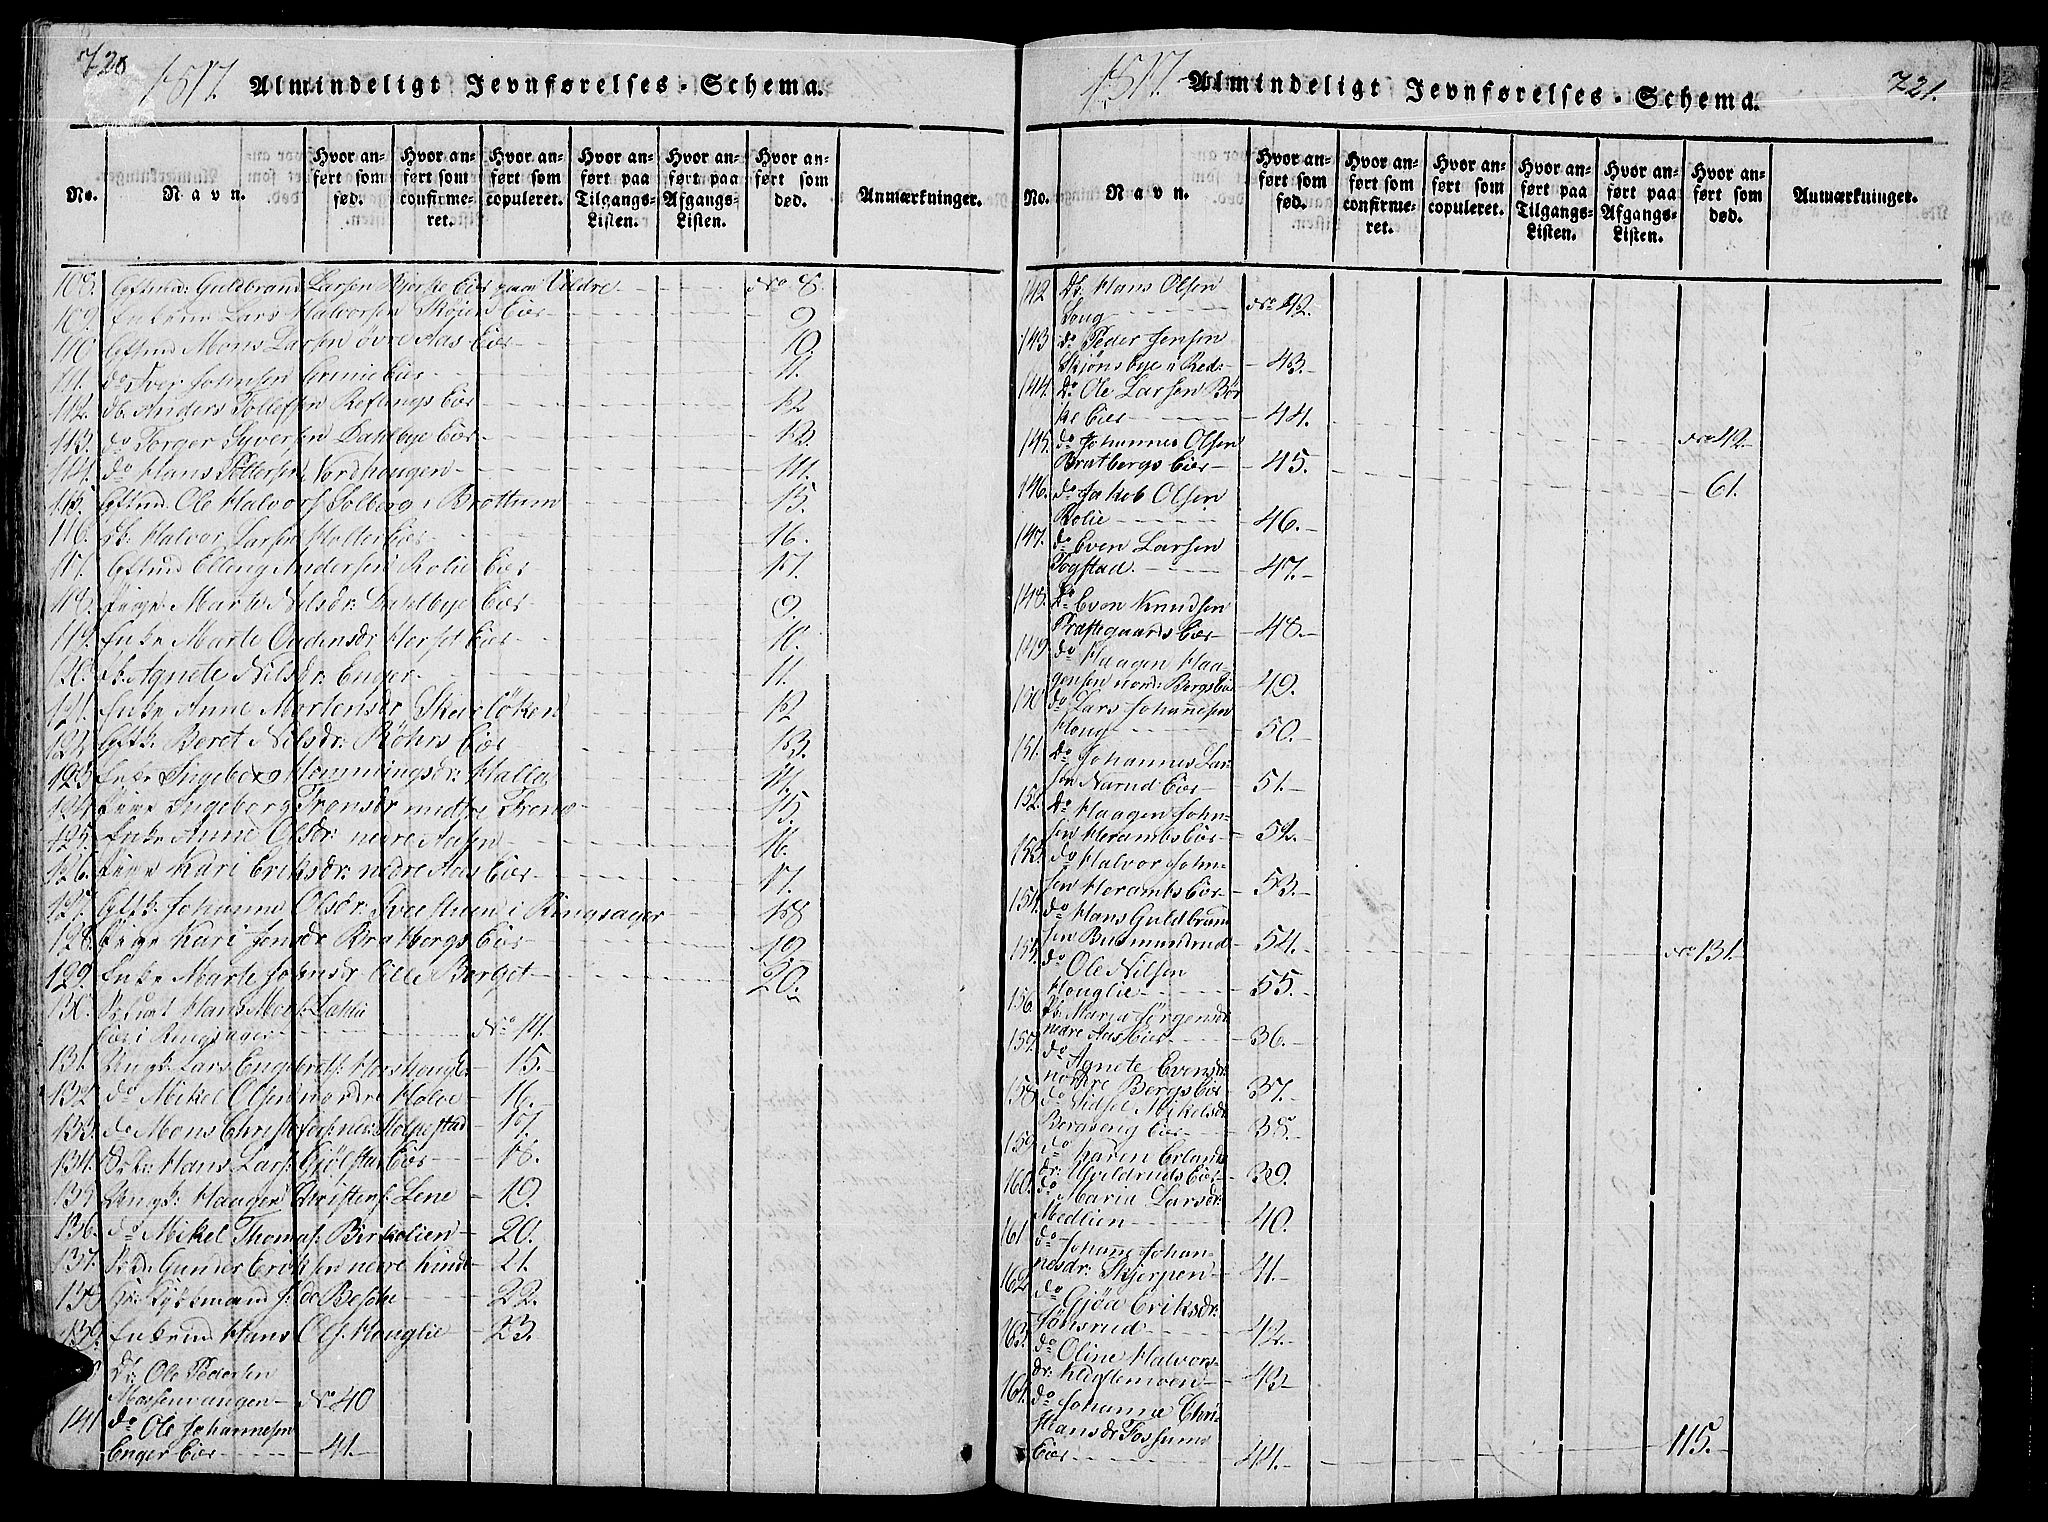 720
1817.
Almindeligt Jevnførelses-Schema.
No.
Navn.
Hvor anført som fød.
Hvor anført som confirmeret.
Hvor anført som copuleret.
Hvor anført paa Tilgangs-Listen.
Hvor anført paa Afgangs-Listen.
Hvor anført som død.
Anmærkninger.
108. Guldbrand Larsen Bjerke Eier Veldre No 8.
109. Lars Halvorsen Skøien Eier 9
110 Mons Larsen øvre Aas Eier 10.
111. do Iver Johnsen Eier 11.
112. Anders Tollefsen Reflings Eier 12
113. do Torger Syversen Dahlbye Eier 13.
114. do Hans Pettersen Nordhougen 14.
115. Ole Halvors. Solberg i Brøttum 15.
116. Halvor Larsen Holter Eier 16.
117. Elling Andersen Rolie Eier 17.
118. Marte Nilsdr. Dahlbye Eier 9.
119. Enke Marte Oudensdr Herset Eier 10.
120. Agnete Nilsdr. Enger 11.
121. Enke Anne Mortensdr Skarløken 12
122. Beret Nilsdr. Røhrs Eier 13.
123. Enke Ingeborg Hemmingsdr. Halla 14.
124. Ingeborg Fransdr midtre 15.
125. Enke Anne Olsdr. nedre Aasen 16.
126. Kari Eriksdr. nedre Aas Eier 17.
127. Johanne Olsdr. Sveesteen i Ringsager 18
128. Kari Jensdr. Bratbergs Eier 19
129. Enke Marte Johnsdr. Lille Berget 20.
130. Hans
Eier i Ringsager No 14.
131. Ungk. Lars Engebrets. 15.
132 do Mikel Olsen nordre Holve 16.
133. do Mons Christofersen Stolpestad 17
134. Hans Lars. Gjølstad Eier 18.
135 Ungk. Haagen Christens. Lene 19.
136. do Mikel Thomas. Birkelien 20.
137. Gunder Eriksen nedre 21.
138 22.
139. Enkemand Hans Ols. Houglie 23.
Dr. Ole Pedersen
Mosseevangen No 40
141 do Ole Johannesen
Enger Eier 41.
1817
Almindeligt Jevnførelses-Schema.
721.
No.
Navn.
Hvor anført som fød.
Hvor anført som confirmeret.
Hvor anført som copuleret.
Hvor anført paa Tilgangs-Listen.
Hvor anført paa Afgangs-Listen.
Hvor anført som død.
Anmærkninger.
142 Db. Hans Olsen
Houg No 42.
143 do Peder Jensen
Skjønsbye i Red: 43.
144. do Ole Larsen Bør
ke Eier 44.
145. do Johannes Olsen No 42
Bratbergs Eier 45.
146. do Jakob Olsen 61.
Rolie 46.
147. do Even Larsen
Togstad 47.
148. do Even Knudsen
Præstegaards Eier 48.
149 do Haagen Haa-
gensen nord: Bergs Eier 49.
150 do Lars Johannesen
Houg 50.
151. do Johannes Lar-
sen Narud Eier 51.
152. do Haagen John-
sen Herambs Eier 52.
153. do Halvor John-
sen Herambs Eier 53.
154. do Hans Guldbrand
sen 54.
155. do Ole Nilsen No 131.
Houglie 55.
156. Pb. Maria Jørgensdr
nedre Aas Eier 36.
157. do Agnete Evensdr
nordre Bergs Eier 37.
158. do Sidsel Mikelsdr
Bergseng Eier 38.
159 do Karen Erlands
dr: Eier 39.
160. do Maria Larsdr.
Medlien 40.
161 do Johanne Johan-
nesdr. Skjerpen 41.
162 do Gjøa Eriksdr.
Jønsrud 42.
163. do Oline Halvors-
dr: Klestemoen 43
164. do Johanne Chri-
stiansdr Fossums 115.
Eier 44.